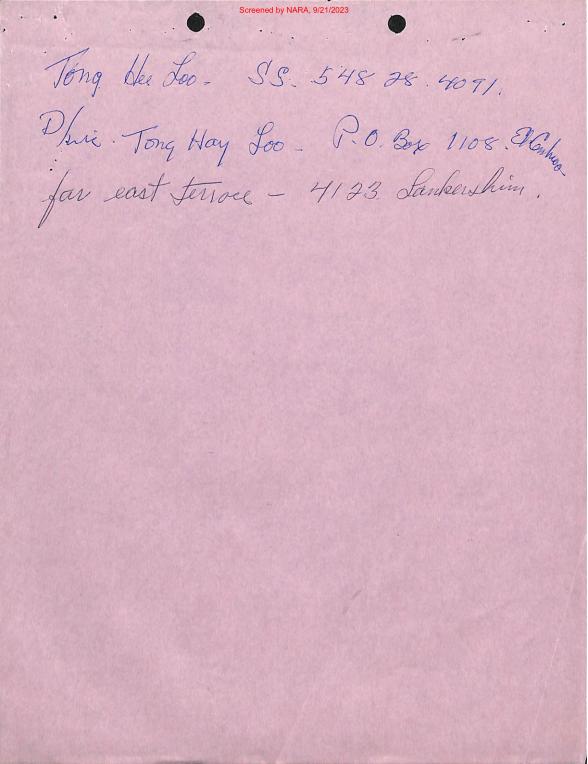 Screened by NARA, 9/21/2023
Tong Hee Loo - SS. 548 28 4091.
Tong Hay Loo - P.O. Box 1108. El Centro
far east terrace - 4123 Lankershim.